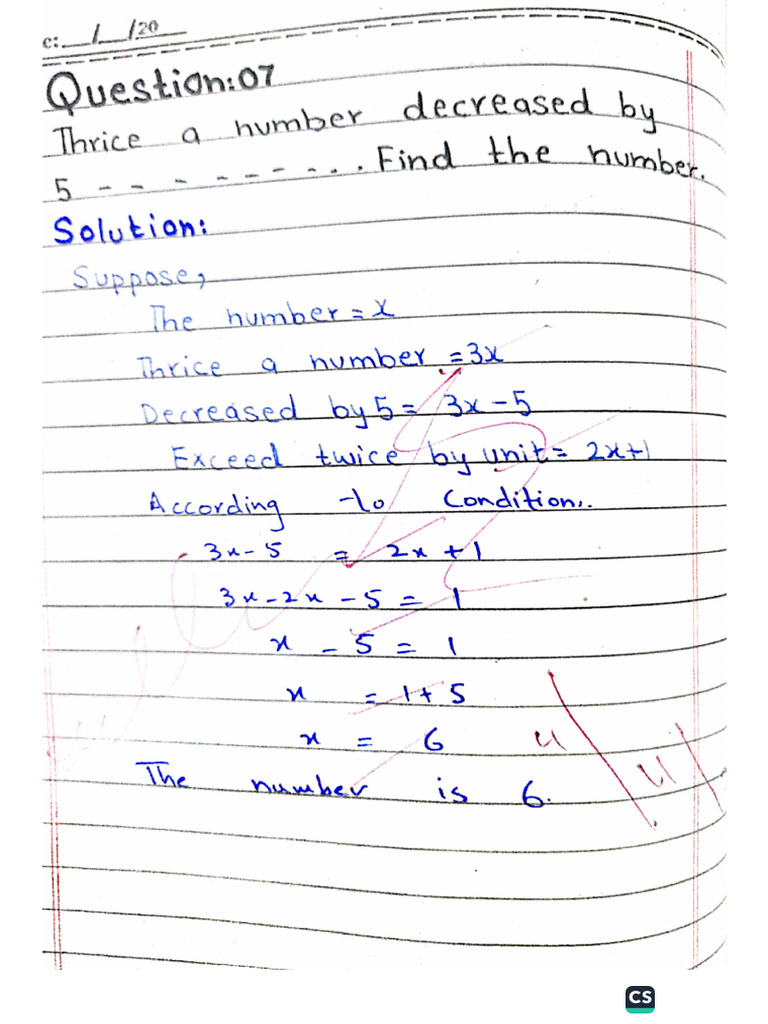 c: __/__/20__
Question:07
Thrice a number decreased by
5 - - - - - - - . . . Find the number.
Solution:
Suppose,
The number = x
Thrice a number = 3x
Decreased by 5 = 3x - 5
Exceed twice by unit = 2x+1
According to Condition..
3x - 5 = 2x + 1
3x - 2x - 5 = 1
x - 5 = 1
x = 1 + 5
x = 6
The number is 6.
CS